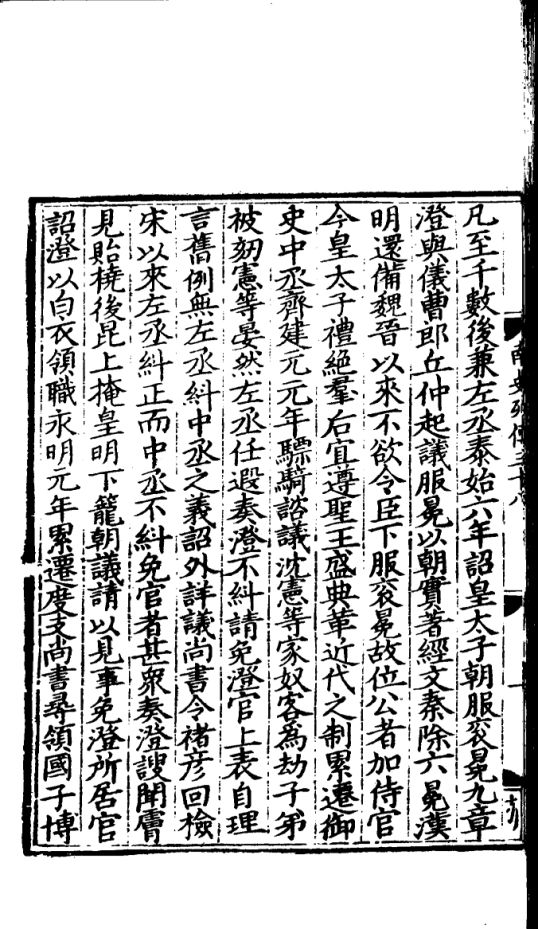 凡至千數後兼左丞泰始六年詔皇太子朝服衮冕九章
澄與儀曹郎丘仲起議服冕以朝實著經文秦除六冕漢
明還備魏晉以來不欲令臣下服衮冕故位公者加侍官
今皇太子禮絶羣后宜遵聖王盛典革近代之制累遷御
史中丞齊建元元年驃騎諮議沈憲等家奴客為劫子弟
被劾憲等晏然左丞任遐奏澄不糾請免澄官上表自理
言舊例無左丞糾中丞之義詔外詳議尚書令褚彦回檢
宋以來左丞糾正而中丞不糾免官者甚衆奏澄謏聞膚
見貽撓後昆上掩皇明下籠朝議請以見事免澄所居官
詔澄以白衣領職永明元年累遷度支尚書尋領國子博